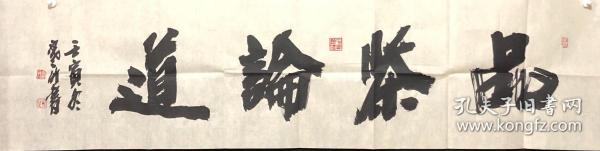 品茶論道
壬寅冬
孔夫子旧书网
www.kongfz.com